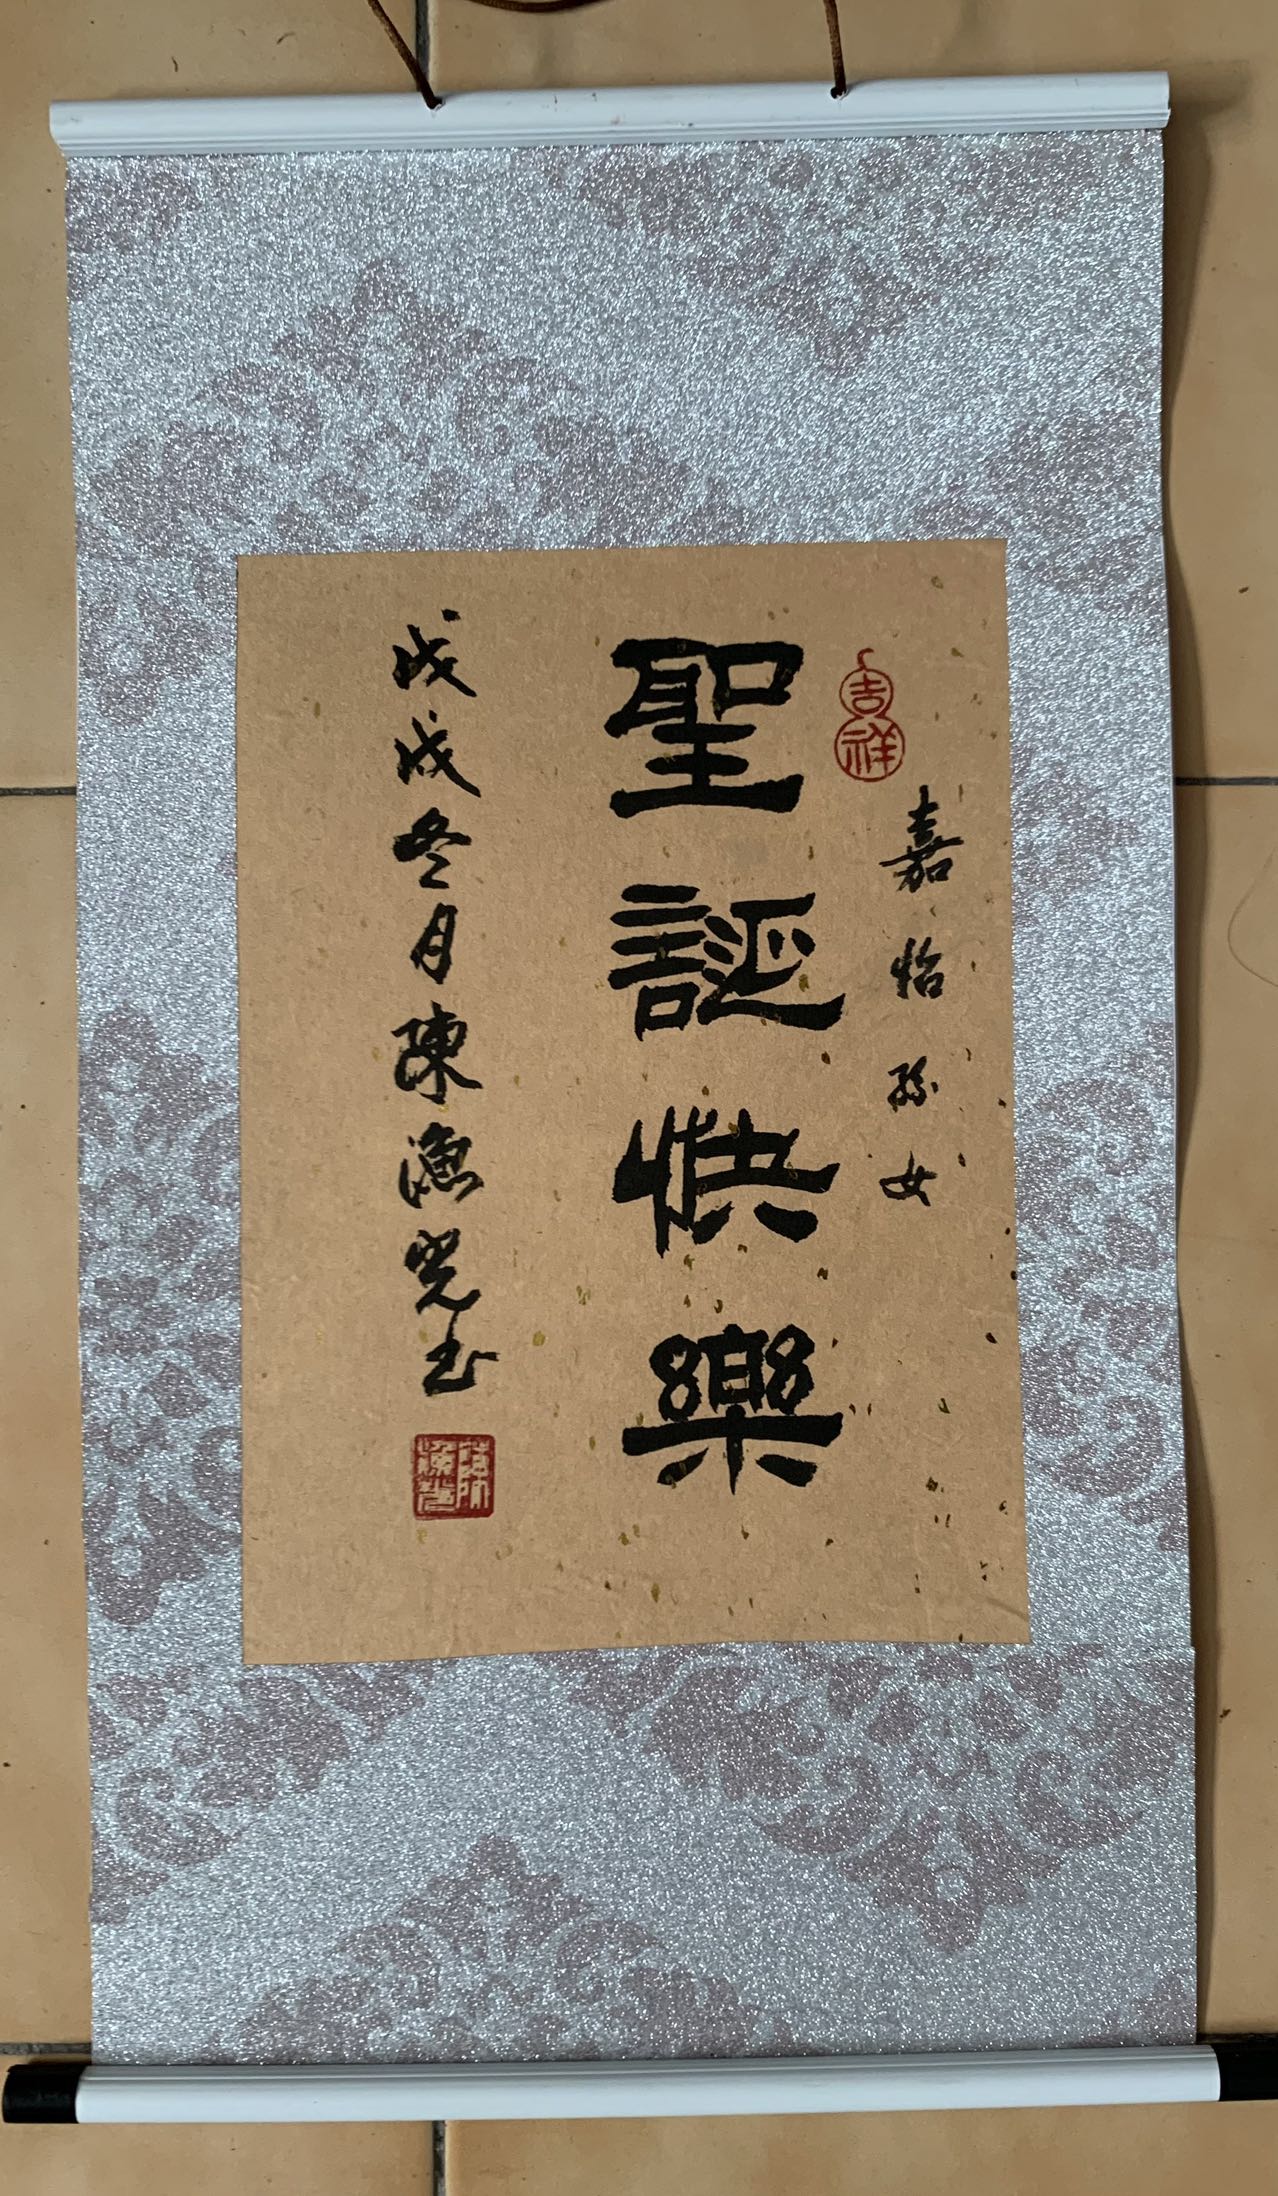 吉祥
嘉怡孫女
聖誕快樂
戊戌冬月陳漁光書